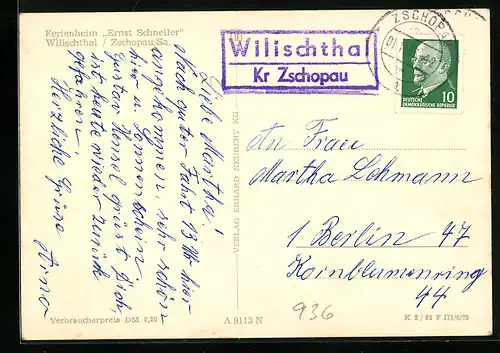 Ferienheim „Ernst Schneller"
Wilischthal / Zschopau, Sa.
Wilischthal
Kr Zschopau
ZSCHOPAU
10
DEUTSCHE
DEMOKRATISCHE REPUBLIK
Liebe Martha!
Nach guter Fahrt 13 Uhr hier
angekommen, sehr schön
hier u. Sonnenschein.
Gustav Hensel grüst Dich,
ist heute wieder zurück
gefahren
Herzliche Grüse
Anna
VERLAG ERHARD NEUBERT KG
An Frau
Martha Lohmann
1 Berlin 47
Kornblumenring
44
936
Verbraucherpreis DM 0,20
A 9113 N
K 5/62 F III/6/75